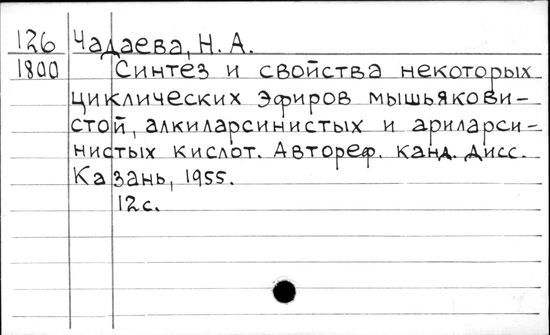 126 Чадаева, Н. А.
1800 Синтез и свойства некоторых
циклических эфиров мышьякови-
стой, алкиларсинистых и арилaрси-
нистых кислот. Автореф. канд. дисс.
Казань, 1955.
12с.